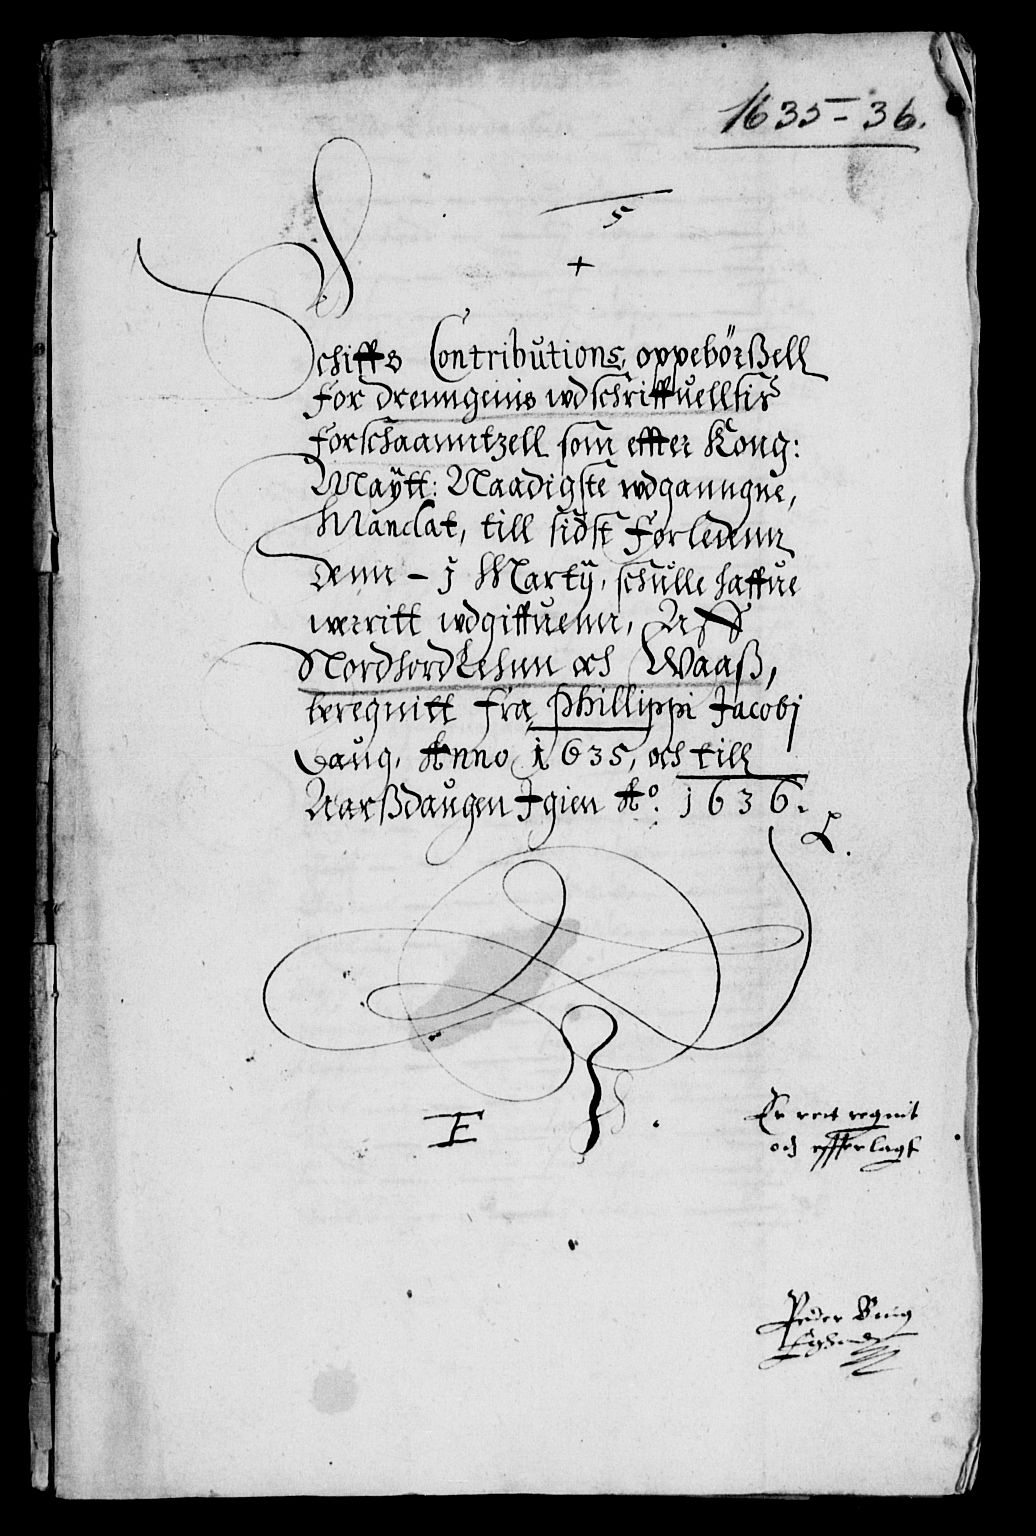 1635-36.
5
+
Schiffs Contributions, oppebörßell
For drenngenis wdschriffuelltir
Forschaanntzell som effter Kong:
Maÿtt: Naadigste wdganngne,
Mandat, till sidst Forledenn
Denn - j Martij, schulle haffue
werritt wdgiffuenn, Aff
Nordhordlehnn och Waaß,
beregnitt fra Phillippi Jacobj
Daug, Anno 1635, och till
Aarßdaugen Jgien Ao. 1636.
L.
E
Er ret regnit
och effterlagt
Peder